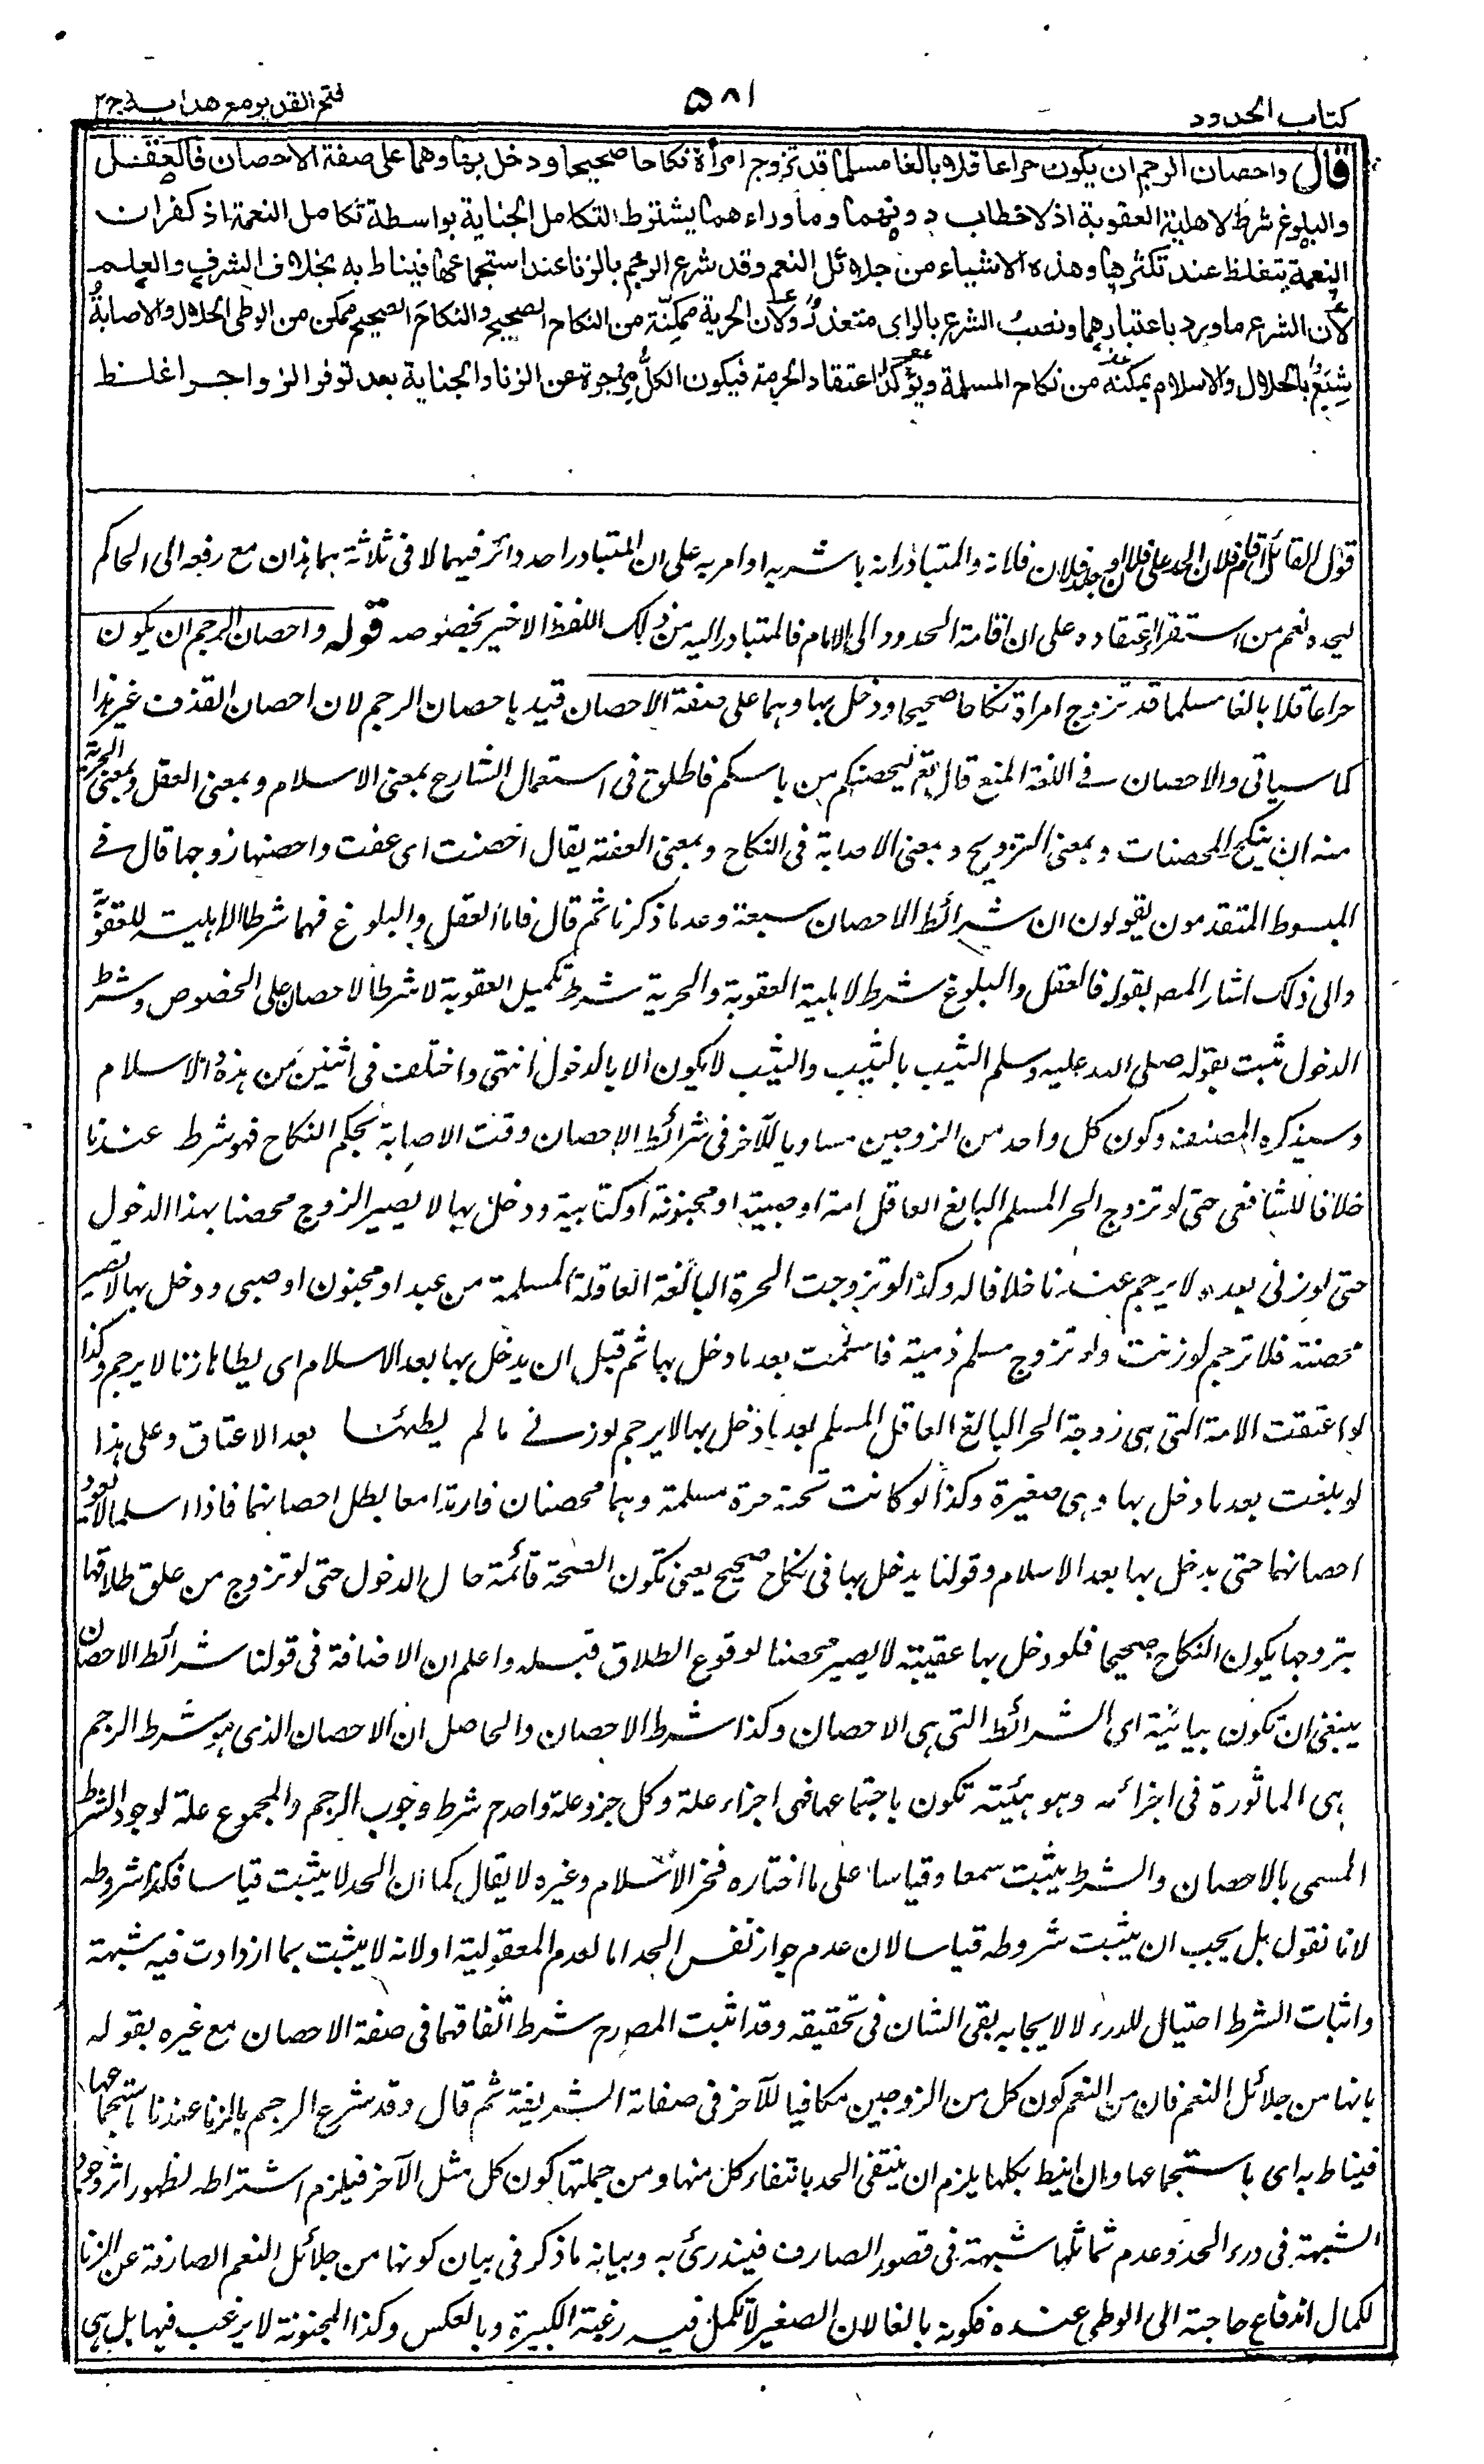 كتاب الحدود
٥٨١
فتح القدير مع هداية ج ٢
قال واحصان الرجم ان يكون حرا عاقلا بالغا مسلما قد تزوج امرأة نكاحا صحيحا ودخل بها وهما على صفة الاحصان فالعقل
والبلوغ شرط لاهلية العقوبة اذ لا خطاب دونهما وما وراءهما يشترط لتكامل الجناية بواسطة تكامل النعمة اذ كفران
النعمة يتغلظ عند تكثرها وهذه الاشياء من جلائل النعم وقد شرع الرجم بالزنا عند استجماعها فيناط به بخلاف الشرف والعلم
لان الشرع ما ورد باعتبارهما ونصب الشرع بالراى متعذر ولان الحرية ممكنة من النكاح الصحيح والنكاح الصحيح ممكن من الوطى الحلال والاصابة
شبع بالحلال والاسلام يمكنه من نكاح المسلمة ويؤكد اعتقاد الحرمة فيكون الكل مزجرة عن الزنا والجناية بعد توفر الزواجر اغلظ
قول القائل اقام فلان الحد على فلان او جلد فلان فلانا والمتبادر انه باشره او امر به على ان المتبادر احد دائر فيهما لا فى ثلاثة هما هذان مع رفعه الى الحاكم
ليحده نعم من استقر اعتقاده على ان اقامة الحدود الى الامام فالمتبادر اليه من ذلك اللفظ الاخير بخصوصه قوله واحصان الرجم ان يكون
حرا عاقلا بالغا مسلما قد تزوج امراة نكاحا صحيحا ودخل بها وهما على صفة الاحصان قيد باحصان الرجم لان احصان القذف غير هذا
كما سياتى والاحصان فى اللغة المنع قال تع لتحصنكم من باسكم فاطلق فى استعمال الشارع بمعنى الاسلام وبمعنى العقل وبمعنى الحرية
منه ان ينكح المحصنات وبمعنى التزويج وبمعنى الاصابة فى النكاح وبمعنى العفة يقال احصنت اى عفت واحصنها زوجها قال فى
المبسوط المتقدمون يقولون ان شرائط الاحصان سبعة وعد ما ذكرنا ثم قال فاما العقل والبلوغ فهما شرطا الاهلية للعقوبة
والى ذلك اشار المصر بقوله فالعقل والبلوغ شرط لاهلية العقوبة والحرية شرط تكميل العقوبة لا شرط الاحصان على الخصوص وشرط
الدخول ثبت بقوله صلى الله عليه وسلم الثيب بالثيب والثيب لا يكون الا بالدخول انتهى واختلف فى اثنين من هذه الاسلام
وسيذكره المصنف وكون كل واحد من الزوجين مساويا للآخر فى شرائط الاحصان وقت الاصابة بحكم النكاح فهو شرط عندنا
خلافا للشافعى حتى لو تزوج الحر المسلم البالغ العاقل امة او صبية او مجنونة او كتابية ودخل بها لا يصير الزوج محصنا بهذا الدخول
حتى لو زنى بعده لا يرجم عندنا خلافا له وكذا لو تزوجت الحرة البالغة العاقلة المسلمة من عبد او مجنون او صبى ودخل بها لا تصير
محصنة فلا ترجم لو زنت ولو تزوج مسلم ذمية فاسلمت بعد ما دخل بها ثم قبل ان يدخل بها بعد الاسلام اى يطاها زنا لا يرجم وكذا
لو اعتقت الامة التى هى زوجة الحر البالغ العاقل المسلم بعد ما دخل بها لا يرجم لو زنى ما لم يطئها بعد الاعتاق وعلى هذا
لو بلغت بعد ما دخل بها وهى صغيرة وكذا لو كانت تحته حرة مسلمة وهما محصنان فارتدا معا بطل احصانهما فاذا اسلما لا يعود
احصانهما حتى يدخل بها بعد الاسلام وقولنا يدخل بها فى نكاح صحيح يعنى تكون الصحة قائمة حال الدخول حتى لو تزوج من علق طلاقها
بتزوجها يكون النكاح صحيحا فلو دخل بها عقيبه لا يصير محصنا لوقوع الطلاق قبله واعلم ان الاضافة فى قولنا شرائط الاحصان
ينبغى ان تكون بيانية اى الشرائط التى هى الاحصان وكذا شرط الاحصان والحاصل ان الاحصان الذى هو شرط الرجم
هى الماثورة فى اجزائه وهو هيئة تكون باجتماعها فهى اجزاء علة وكل جزء علة واحدم شرط وجوب الرجم والمجموع علة لوجود الشرط
المسمى بالاحصان والشرط يثبت سمعا وقياسا على ما اختاره فخر الاسلام وغيره لا يقال كما ان الحد لا يثبت قياسا فكذا شروطه
لانا نقول بل يجب ان يثبت شروطه قياسا لان عدم جواز نفس الحد اما لعدم المعقولية او لانه لا يثبت بما ازدادت فيه شبهة
واثبات الشرط احتيال للدرء لا لايجابه بقى الشان فى تحقيقه وقد اثبت المصرح شرط اتفاقهما فى صفة الاحصان مع غيره بقوله
بانها من جلائل النعم فان من النعم كون كل من الزوجين مكافيا للآخر فى صفاته الشريفة ثم قال وقد شرع الرجم بالزنا عندنا باستجماعها
فيناط به اى باستجماعها وان انيط بكلها يلزم ان ينتفى الحد بانتفاء كل منها ومن جملتها كون كل مثل الآخر فيلزم اشتراطه لظهور اثر وجود
الشبهة فى درء الحد وعدم تماثلها شبهة فى قصور الصارف فيندرئ به وبيانه ما ذكر فى بيان كونها من جلائل النعم الصارفة عن الزنا
لكمال اندفاع حاجته الى الوطى عنده فكونه بالغا لان الصغير لا تكمل فيه رغبة الكبيرة وبالعكس وكذا المجنونة لا يرغب فيها بل هى